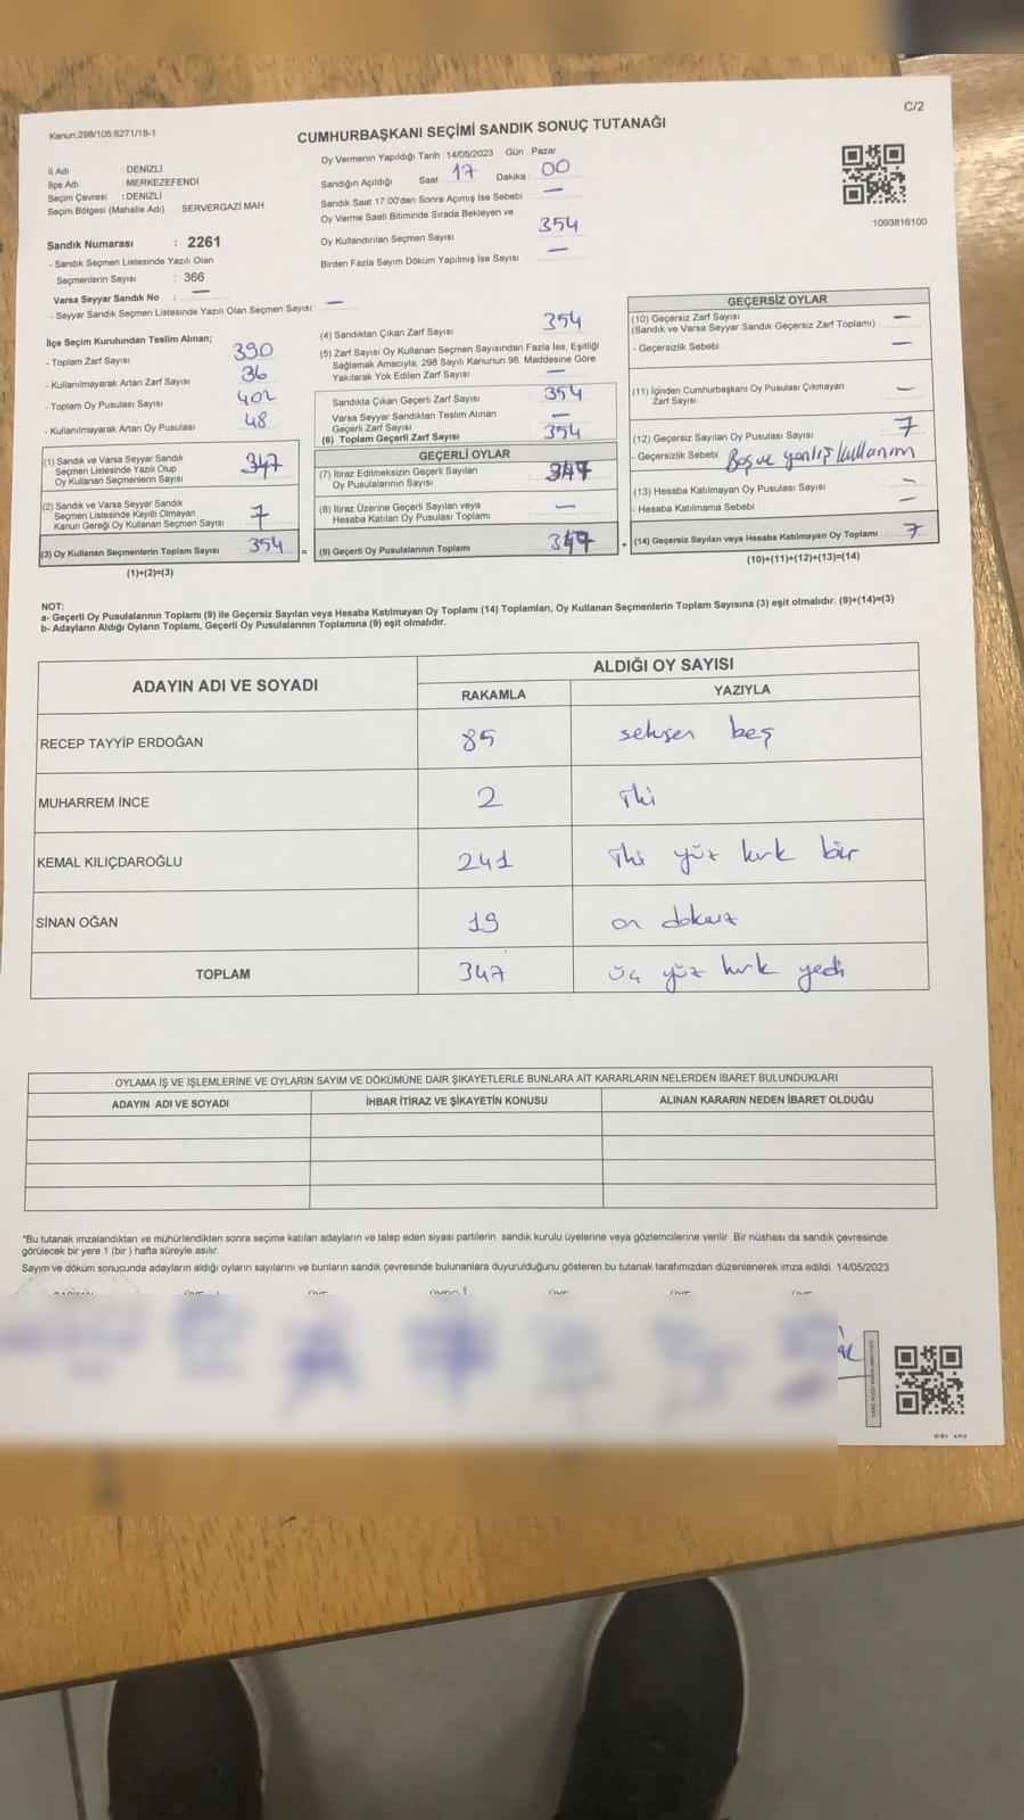 C/2
Kanun:298/105:6271/18-1
CUMHURBAŞKANI SEÇİMİ SANDIK SONUÇ TUTANAĞI
İl Adı : DENİZLİ
İlçe Adı : MERKEZEFENDİ
Seçim Çevresi : DENİZLİ
Seçim Bölgesi (Mahalle Adı) SERVERGAZİ MAH
Sandık Numarası : 2261
- Sandık Seçmen Listesinde Yazılı Olan
Seçmenlerin Sayısı : 366
Varsa Seyyar Sandık No : —
- Seyyar Sandık Seçmen Listesinde Yazılı Olan Seçmen Sayısı: —
Oy Vermenin Yapıldığı Tarih 14/05/2023 Gün Pazar
Sandığın Açıldığı Saat 17 Dakika 00
Sandık Saat 17:00'den Sonra Açılmış İse Sebebi —
Oy Verme Saati Bitiminde Sırada Bekleyen ve
Oy Kullandırılan Seçmen Sayısı 354
Birden Fazla Sayım Döküm Yapılmış İse Sayısı —
1093816100
İlçe Seçim Kurulundan Teslim Alınan;
- Toplam Zarf Sayısı 390
- Kullanılmayarak Artan Zarf Sayısı 36
- Toplam Oy Pusulası Sayısı 402
- Kullanılmayarak Artan Oy Pusulası 48
(1) Sandık ve Varsa Seyyar Sandık
Seçmen Listesinde Yazılı Olup
Oy Kullanan Seçmenlerin Sayısı 347
(2) Sandık ve Varsa Seyyar Sandık
Seçmen Listesinde Kayıtlı Olmayan
Kanun Gereği Oy Kullanan Seçmen Sayısı 7
(3) Oy Kullanan Seçmenlerin Toplam Sayısı 354 =
(1)+(2)=(3)
(4) Sandıktan Çıkan Zarf Sayısı 354
(5) Zarf Sayısı Oy Kullanan Seçmen Sayısından Fazla İse, Eşitliği
Sağlamak Amacıyla, 298 Sayılı Kanunun 98. Maddesine Göre
Yakılarak Yok Edilen Zarf Sayısı —
Sandıkta Çıkan Geçerli Zarf Sayısı 354
Varsa Seyyar Sandıktan Teslim Alınan
Geçerli Zarf Sayısı —
(6) Toplam Geçerli Zarf Sayısı 354
GEÇERLİ OYLAR
(7) İtiraz Edilmeksizin Geçerli Sayılan
Oy Pusulalarının Sayısı 347
(8) İtiraz Üzerine Geçerli Sayılan veya
Hesaba Katılan Oy Pusulası Toplamı —
(9) Geçerli Oy Pusulalarının Toplamı 347 +
GEÇERSİZ OYLAR
(10) Geçersiz Zarf Sayısı —
(Sandık ve Varsa Seyyar Sandık Geçersiz Zarf Toplamı)
- Geçersizlik Sebebi —
(11) İçinden Cumhurbaşkanı Oy Pusulası Çıkmayan
Zarf Sayısı —
(12) Geçersiz Sayılan Oy Pusulası Sayısı 7
- Geçersizlik Sebebi Boş ve yanlış kullanım
(13) Hesaba Katılmayan Oy Pusulası Sayısı —
- Hesaba Katılmama Sebebi —
(14) Geçersiz Sayılan veya Hesaba Katılmayan Oy Toplamı 7
(10)+(11)+(12)+(13)=(14)
NOT:
a- Geçerli Oy Pusulalarının Toplamı (9) ile Geçersiz Sayılan veya Hesaba Katılmayan Oy Toplamı (14) Toplamları, Oy Kullanan Seçmenlerin Toplam Sayısına (3) eşit olmalıdır. (9)+(14)=(3)
b- Adayların Aldığı Oyların Toplamı, Geçerli Oy Pusulalarının Toplamına (9) eşit olmalıdır.
ADAYIN ADI VE SOYADI
ALDIĞI OY SAYISI
RAKAMLA YAZIYLA
RECEP TAYYİP ERDOĞAN 85 seksen beş
MUHARREM İNCE 2 iki
KEMAL KILIÇDAROĞLU 241 iki yüz kırk bir
SİNAN OĞAN 19 on dokuz
TOPLAM 347 üç yüz kırk yedi
OYLAMA İŞ VE İŞLEMLERİNE VE OYLARIN SAYIM VE DÖKÜMÜNE DAİR ŞİKAYETLERLE BUNLARA AİT KARARLARIN NELERDEN İBARET BULUNDUKLARI
ADAYIN ADI VE SOYADI İHBAR İTİRAZ VE ŞİKAYETİN KONUSU ALINAN KARARIN NEDEN İBARET OLDUĞU
*Bu tutanak imzalandıktan ve mühürlendikten sonra seçime katılan adayların ve talep eden siyasi partilerin sandık kurulu üyelerine veya gözlemcilerine verilir. Bir nüshası da sandık çevresinde
görülecek bir yere 1 (bir) hafta süreyle asılır.
Sayım ve döküm sonucunda adayların aldığı oyların sayılarını ve bunların sandık çevresinde bulunanlara duyurulduğunu gösteren bu tutanak tarafımızdan düzenlenerek imza edildi. 14/05/2023